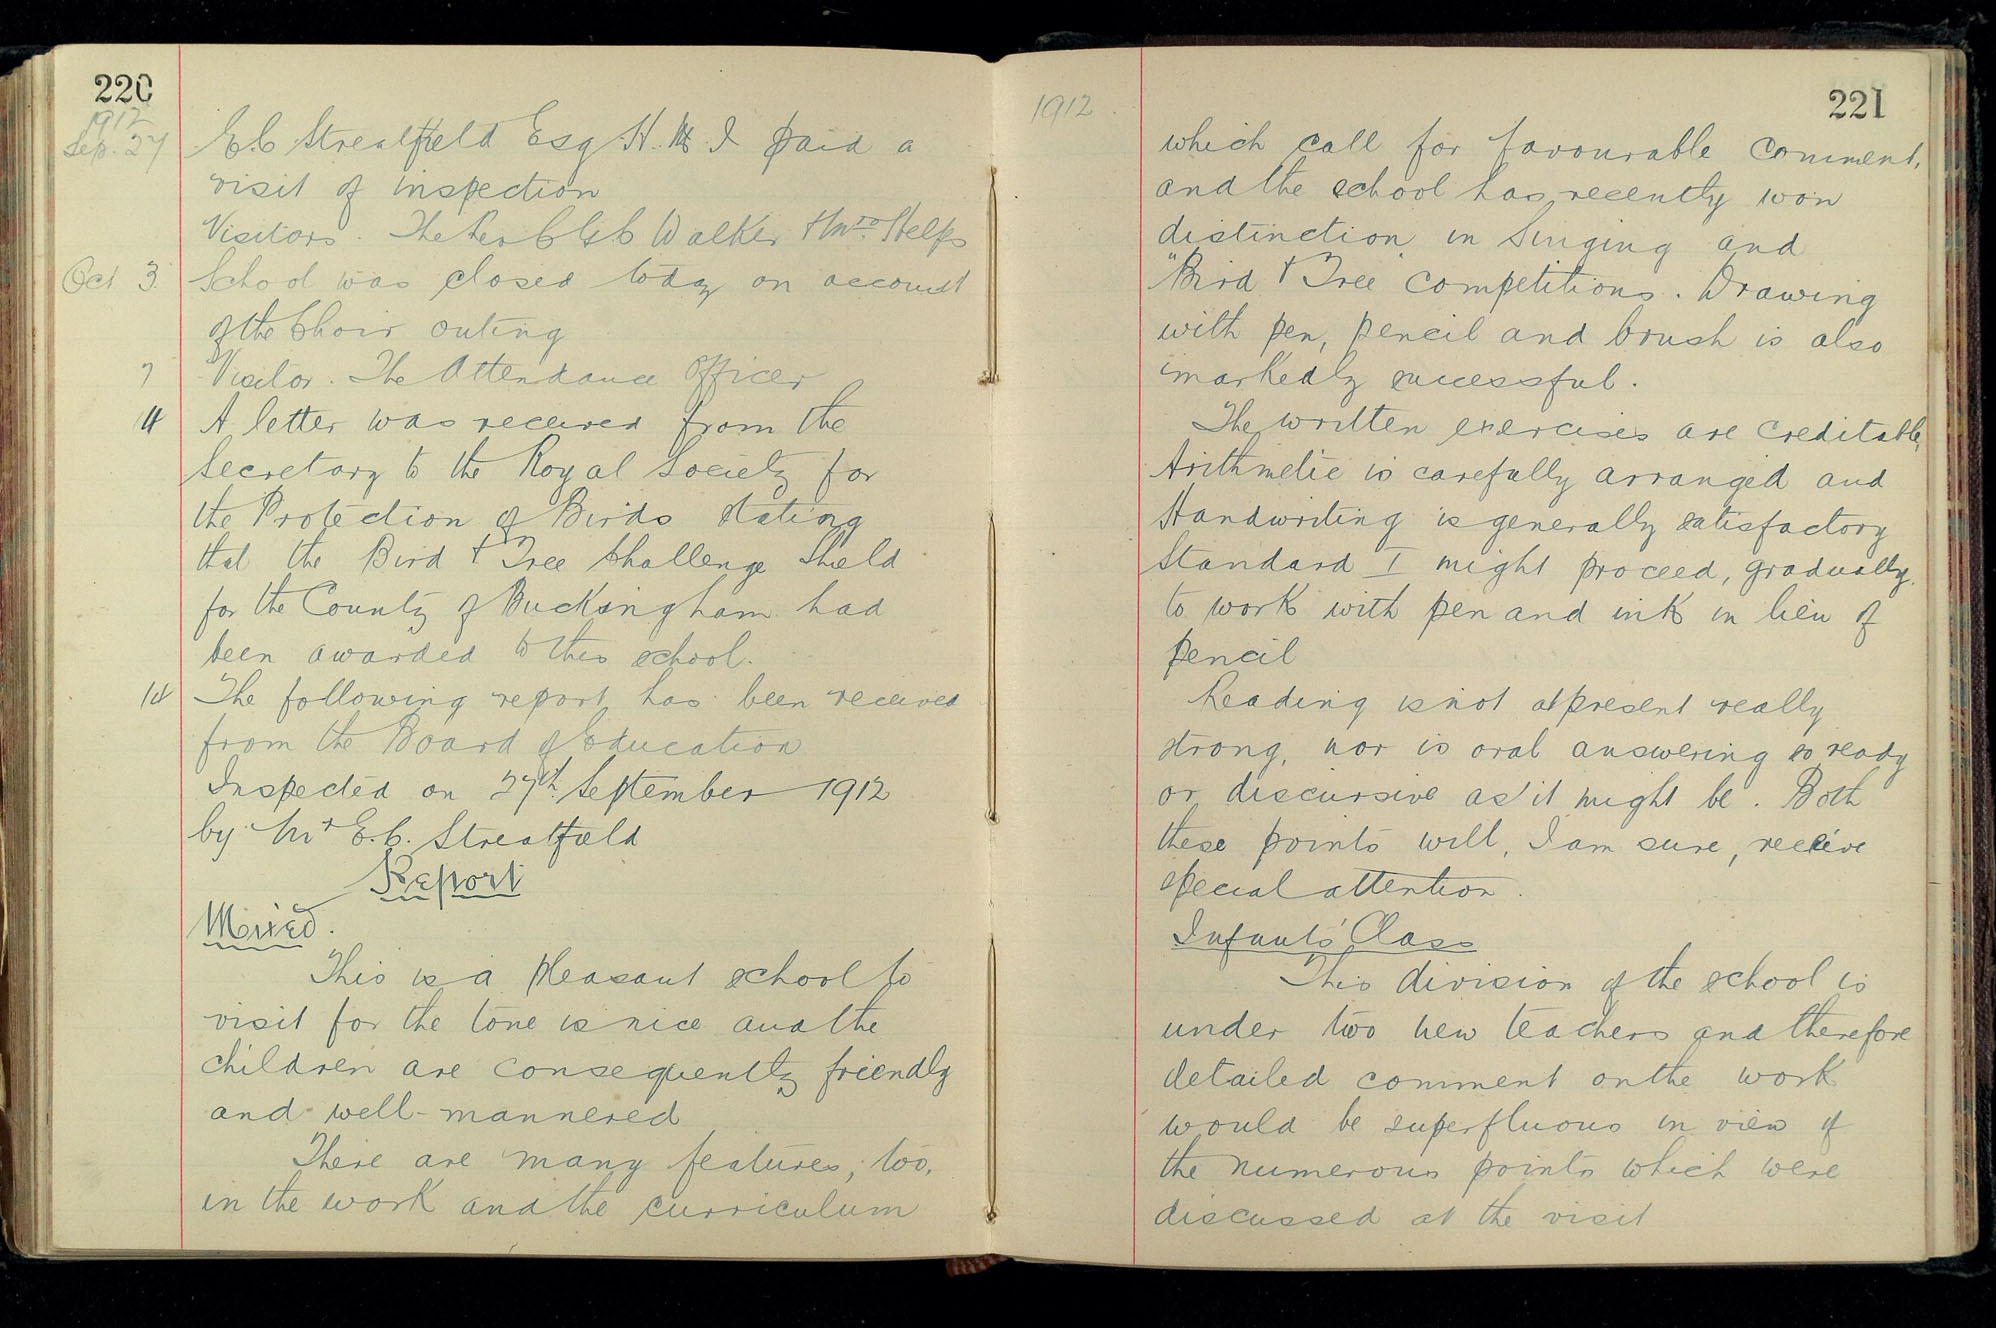 220
1912
Sep. 27 E.C. Streatfield Esq H.M.I paid a
visit of inspection
Visitors. The Rev C G C Walker & Mrs Helps
Oct 3. School was closed today on account
of the Choir outing
7 Visitor. The Attendance Officer
11 A letter was received from the
Secretary to the Royal Society for
the Protection of Birds stating
that the Bird & Tree Challenge Shield
for the County of Buckingham had
been awarded to this school.
14 The following report has been received
from the Board of Education
Inspected on 27th September 1912
by Mr E.C. Streatfield
Report
Mixed.
This is a pleasant school to
visit for the tone is nice and the
children are consequently friendly
and well-mannered
There are many features, too,
in the work and the curriculum
1912
221
which call for favourable comment,
and the school has recently won
distinction in Singing and
"Bird & Tree" competitions. Drawing
with pen, pencil and brush is also
markedly successful.
The written exercises are creditable,
Arithmetic is carefully arranged and
Handwriting is generally satisfactory
Standard I might proceed, gradually,
to work with pen and ink in lieu of
pencil
Reading is not at present really
strong, nor is oral answering so ready
or discursive as it might be. Both
these points will, I am sure, receive
special attention.
Infants' Class
This division of the school is
under two new teachers and therefore
detailed comment on the work
would be superfluous in view of
the numerous points which were
discussed at the visit